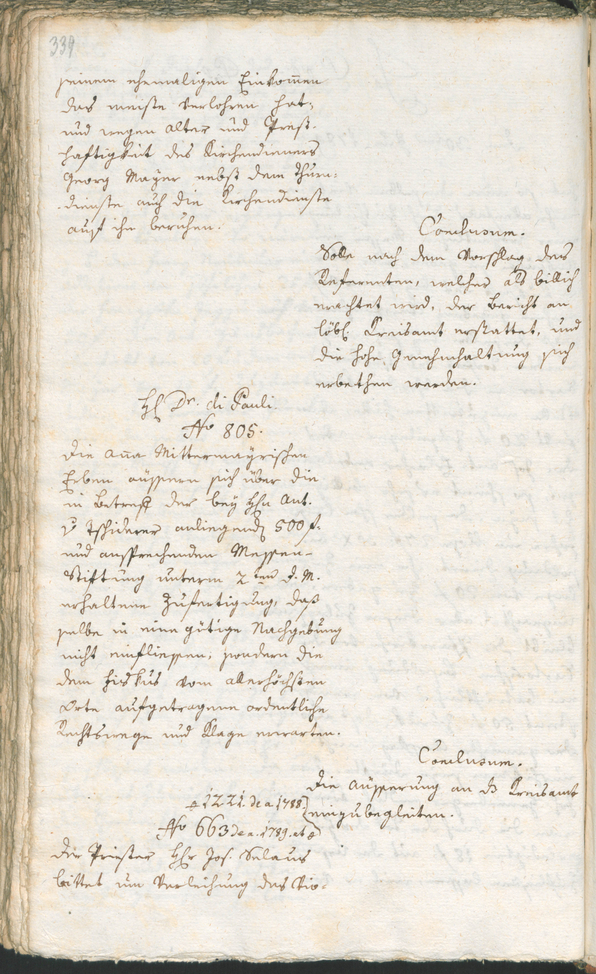 339
seinem ehemaligen Einkom̅en
das meiste verlohren hat,
und wegen Alter und Prest-
haftigkeit des Kirchendieners
Georg Mayer nebst dem Thurn-
dienste auch die Kirchendienste
auf ihn beruhen.
Conclusum.
Solle nach dem Vorschlag des
Referenten, welcher als billich
erachtet wird, der Bericht an
löbl. Kreisamt erstattet, und
die hohe Genehmhaltung sich
erbethen werden.
H. Dr. di Pauli
No 805.
Die Anna Mittermayrischen
Erben äussern sich über die
in Betreff der bey Hhn Ant.
v Tschiderer anliegend 500 f.
und ansprechenden Messen-
Stiftung unterm 2ten d. M.
erhaltene Zufertigung, daß
selbe in eine gütige Nachgebung
nicht einfliessen, sondern die
dem Fiskus vom allerhöchsten
Orte aufgetragene ordentliche
Rechtswege und Klage erwarten.
Conclusum.
Die Äusserung an ds Kreisamt
einzubegleiten.
1221. de a. 1788.
No 663 de a. 1789. et
Der Priester Hhr Jos. Selaus
bittet um Verleihung des